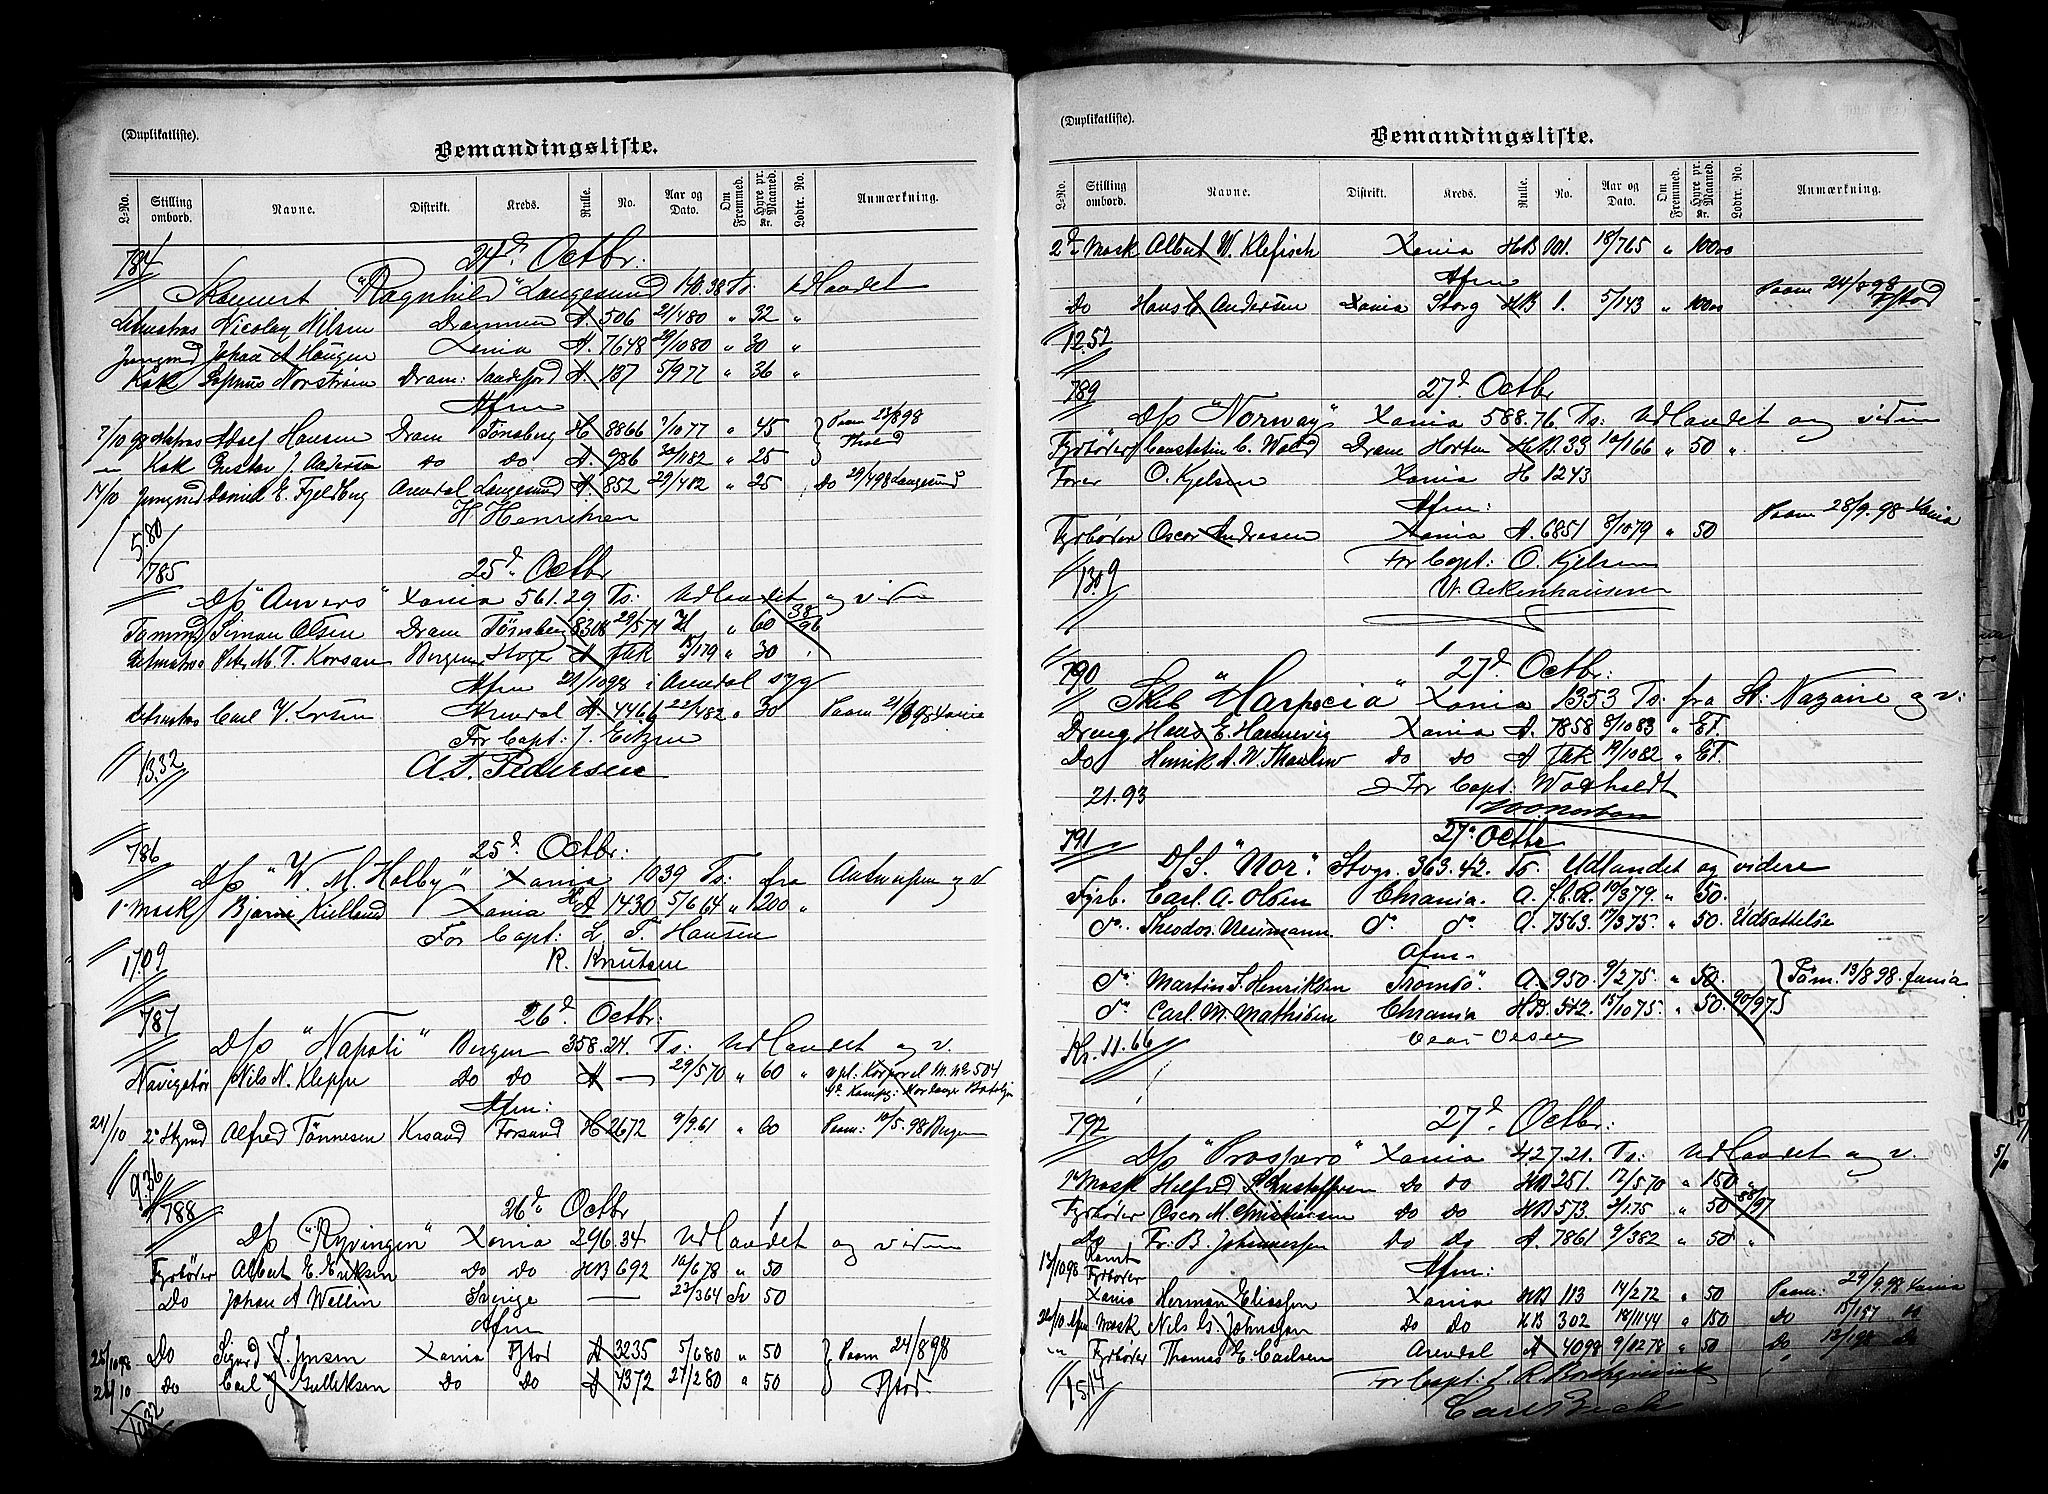 (Duplikatliste).
Bemandingsliste.
L-No. Stilling ombord. Navne. Distrikt. Kreds. Rulle. No. Aar og Dato. Om Fremmed. Hyre pr. Maaned. Kr. Lodtr. No. Anmærkning.
784 24d Octbr:
Skonnert "Ragnhild" Langesund 140.38 Ts: Udlandet
Letmatros Nicolay Nilsen Drammen A. 506 21/480 " 32 "
Jungmd Johan A Haugen Xania A. 7648 29/1080 " 30 "
Kok Sophus Norstrøm Dram: Sandefjord A. 137 5/977 " 36 "
Afm
7/10 98 Matros Adolf Hansen Dram Tønsberg H 8866 7/1077 " 45 Paam 23/898
" Kok Gustav J. Andersen do do A. 986 30/1182 " 25
14/10 Jungmd Daniel E. Fjeldberg Arendal Langesund A. 852 29/482 " 25 Do 29/498 Langesund
H. Henriksen
5.80
785 25d Octbr
D/s "Anvers" Xania 561.29 Ts: Udlandet og viden
Tømmd Simon Olsen Dram Tønsberg 8308 29/574 H " 60 38/96
Letmatros Peter M. T. Korsan Bergen A Ftk 13/179 " 30
Afm 21/1098 i Arendal syg
Letmatros Carl V. Larsen Arendal A. 4466 22/482 " 30 Paam 21/898 Xania
For Capt: J. Eitzen
13.32 A. S. Pedersen
786 25d Octbr:
D/s "W. M. Holby" Xania 1039 Ts: fra Antwerpen og v
1e Mask Bjarne Kielland Xania HA 1430 5/664 " 200 "
For Capt: L. T. Hansen
1709 R. Knutsen
787 26d Octbr:
D/s "Napoli" Bergen 358.24. Ts: Udlandet og v.
Navigatør Nils N. Kleppe Do Do A — 29/570 " 60 " opt: Korporal M. No 504
4de Kompg: Nordanger Bataljon
Afm:
24/10 2e Stymd Alfred Tønnesen Krsand Forsand H 2672 9/961 " 60 Paam: 10/5-98 Bergen
9.36
788 26d Octbr
D/s "Ryvingen" Xania 296.34 Udlandet og viden
Fyrbøder Albert E. Eriksen Do Do HB 692 10/678 " 50
Do Johan A Wellin Sverige — 23/364 Sv 50
Afm
25/1098 Do Sigurd J. Jensen Xania Fstad A 3235 5/680 " 50 Paam 24/898
26/10 Do Carl J. Gulliksen Do Do A 4372 27/280 " 50 Fstad.
(Duplikatliste).
Bemandingsliste.
L-No. Stilling ombord. Navne. Distrikt. Kreds. Rulle. No. Aar og Dato. Om Fremmed. Hyre pr. Maaned. Kr. Lodtr. No. Anmærkning.
2d Mask Albert W. Klefisch Xania HB 101. 18/765 " 100 00
Afm
Do Hans C Andersen Xania Storg HB 1. 5/143 " 100 00 Paam 24/898 Fstad
12.52
789 27d Octbr
D/s "Norway" Xania 588.76. Ts: Udlandet og viden
Fyrbøder Constatin C. Wold Dram Horten HB. 33 10/166 " 50 "
Fører O. Kjelsen Xania H 1243
Afm:
Fyrbøder Oscar Andresen Xania A. 6851 8/1079 " 50 Paam 28/9.98 Xania
For Capt: O. Kjelsen
13.09 W. Ackenhausen
790 27d Octbr:
Skib "Harpocia" Xania 1353 Ts: fra St: Nazaire og v:
Dreng Hans E. Hannevig Xania A. 7858 8/1083 " ET.
Do Henrik A. W. Thaulow do do A Ftk 19/1082 " ET.
For Capt: Waxholdt
21.93
791 27d Octbr
D/S. "Nor". Stvgr. 363.42. Ts. Udlandet og videre
Fyrb. Carl A. Olsen Chrania. A. 10/379. " 50.
do. Theodor. Neumann do do. A. 7563. 17/375. " 50. Udsatteløs
Afm.
do. Martin J. Henriksen Tromsø. A. 950. 9/275. " 50. Påm. 13/8 98. Xania.
do Carl M. Mathisen Chrania HB. 512. 15/1075. " 50. 90/97.5
Kr. 11.66
792 27d Octbr:
D/s "Prospero" Xania 427.21. Ts: Udlandet og v.
1e Mask Halfred P. Gustafsen Do do HB 251 12/570 " 150 "
Fyrbøder Oscar M. Christiansen Do Do HB 573. 2/175 " 50 88/97
Do Fr: B. Johannessen Do Do A. 7861 9/382 " 50 "
13/1098 Fyrbøder Afm:
Xania Herman Eliassen Xania HB 113 14/272 " 50 Paam: 29/9.98 Xania
Mask Nils G. Johnsen Do Do HB 302 18/1144 " 150 Do 15/157 Do
" Fyrbøder Thomas E. Carlsen Arendal A 4098 9/1278 " 50 Do 13/198 Do
For Capt:
15.14 Carl Beck